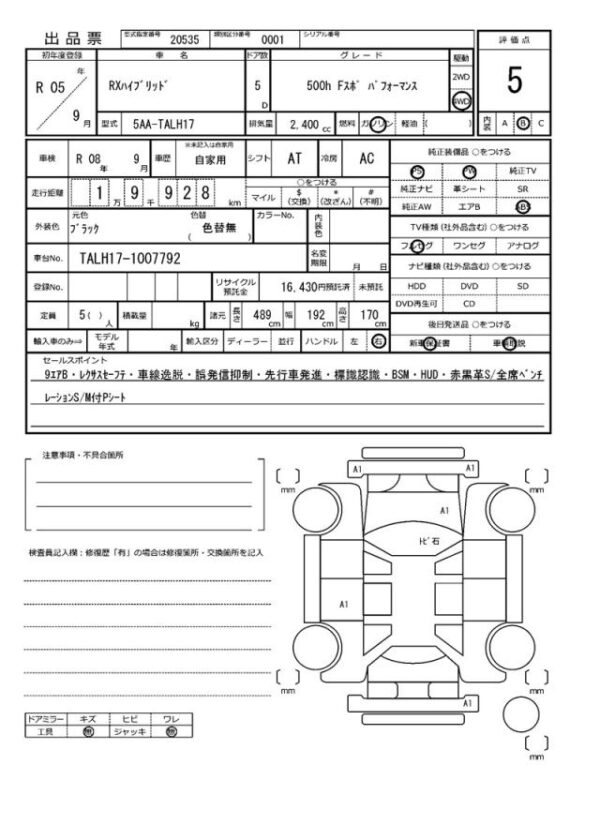 出品票 型式指定番号 20535 類別区分番号 0001 シリアル番号
評価点
5
内装 A B C
初年度登録 車名 ドア数 グレード 駆動
R 05 年 9 月
RXハイブリッド 5 D 500h Fスポ パフォーマンス
2WD
4WD
型式 5AA-TALH17 排気量 2,400 cc 燃料 ガソリン 軽油 ( )
車検 R 08 年 9 月 車歴 ※未記入は自家用 自家用 シフト AT 冷房 AC
走行距離 1 万 9 千 9 2 8 km
○をつける
マイル $ (交換) * (改ざん) # (不明)
外装色 元色 ブラック 色替 ( 色替無 ) カラーNo. 内装色
車台No. TALH17-1007792 名変期限 月 日
登録No. リサイクル預託金 16,430円預託済 未預託
定員 5 ( ) 人 積載量 kg 諸元 長さ 489 cm 幅 192 cm 高さ 170 cm
輸入車のみ⇒ モデル年式 年 輸入区分 ディーラー 並行 ハンドル 左 右
純正装備品 ○をつける
PS PW 純正TV
純正ナビ 革シート SR
純正AW エアB ABS
TV種類 (社外品含む) ○をつける
フルセグ ワンセグ アナログ
ナビ種類 (社外品含む) ○をつける
HDD DVD SD
DVD再生可 CD
後日発送品 ○をつける
新車保証書 車輌取説
セールスポイント
9ｴｱB・ﾚｸｻｽｾｰﾌﾃ・車線逸脱・誤発信抑制・先行車発進・標識認識・BSM・HUD・赤黒革S/全席ﾍﾞﾝﾁ
ﾚｰｼｮﾝS/M付Pｼｰﾄ
注意事項・不具合箇所
検査員記入欄：修復歴「有」の場合は修復箇所・交換箇所を記入
ドアミラー キズ ヒビ ワレ
工具 無 ジャッキ 無
A1 A1
mm mm
A1
ﾄﾋﾞ石
A1
mm mm
A1
mm